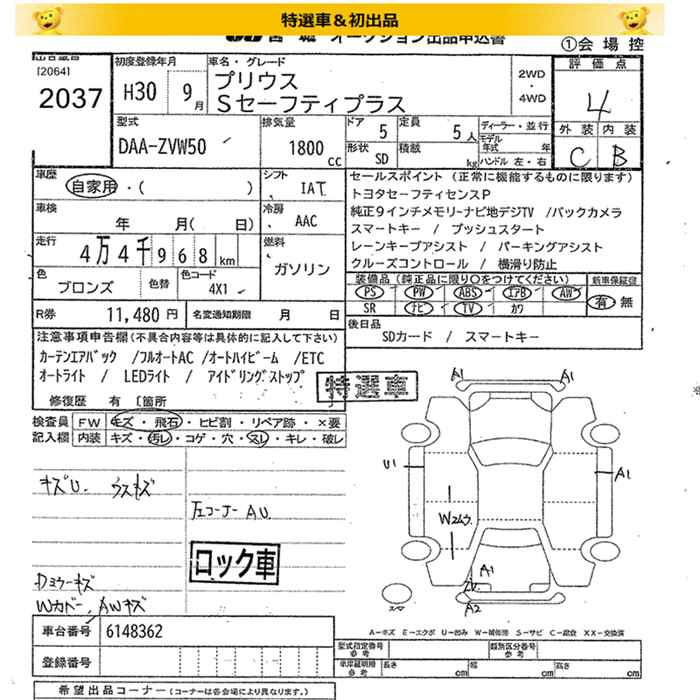 特選車＆初出品
オークション出品申込書
①会場控
出品番号
[2064]
2037
初度登録年月
H30 9月
車名・グレード
プリウス
Sセーフティプラス
2WD
・
4WD
評価点
4
外装 内装
C B
型式
DAA-ZVW50
排気量
1800 cc
ドア 5
定員 5人
形状 SD
積載 kg
ディーラー・並行
モデル年式 年
ハンドル 左・右
車歴
自家用・( )
シフト
IAT
車検
年 月( 日)
冷房
AAC
走行
4万4千968 km
燃料
ガソリン
色
ブロンズ
色替
色コード
4X1
R券 11,480円
名変通知期限 月 日
セールスポイント(正常に機能するものに限ります)
トヨタセーフティセンスP
純正9インチメモリーナビ地デジTV /バックカメラ
スマートキー / プッシュスタート
レーンキープアシスト / パーキングアシスト
クルーズコントロール / 横滑り防止
装備品(純正品に限り○をつけてください)
新車保証書
PS PW ABS エアB AW
SR ナビ TV カワ
有・無
後日品
SDカード / スマートキー
注意事項申告欄(不具合内容等は具体的に記入して下さい)
カーテンエアバック /フルオートAC /オートハイビーム /ETC
オートライト / LEDライト / アイドリングストップ
特選車
修復歴 有 〔箇所
検査員記入欄
FW キズ・飛石・ヒビ割・リペア跡・×要
内装 キズ・汚レ・コゲ・穴・スレ・キレ・破レ
キズU. ウスキズ
左コーナーAU
ロック車
ドミラーキズ
Wカバー、AWキズ
A1 A1
U1 A1
W2ムラ
A1
A2
スマ
A-キズ E-エクボ U-凹み W-補修跡 S-サビ C-腐食 XX-交換済
車台番号 6148362
登録番号
型式指定番号 参考
類別区分番号 参考
車庫証明用 参考
長さ cm 幅 cm 高さ cm
希望出品コーナー(コーナーは各会場により異なります。)